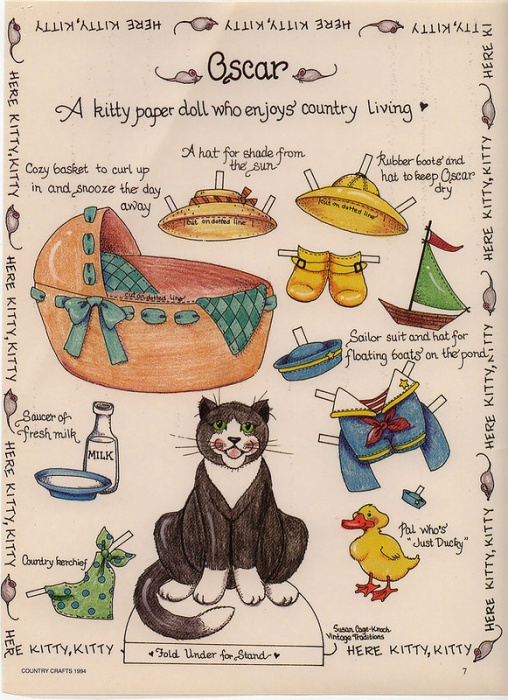 HERE KITTY, KITTY HERE KITTY, KITTY HERE KITTY, KITTY
Oscar
A kitty paper doll who enjoys' country living
A hat for shade from
the sun
Rubber boots and
hat to keep Oscar
dry
Cozy basket to curl up
in and snooze the day
away
cut on dotted line
cut on dotted line
cut on dotted line
Sailor suit and hat for
floating boats on the pond
Saucer of
fresh milk
MILK
Pal who's
"Just Ducky"
Country kerchief
Susan Cage-Knoch
Vintage Traditions
Fold Under for Stand
HERE KITTY, KITTY
HERE KITTY, KITTY
HERE KITTY, KITTY
HERE KITTY, KITTY
HERE KITTY, KITTY
HERE KITTY, KITTY
HERE KITTY, KITTY
HERE KITTY, KITTY
HERE KITTY, KITTY
HERE KITTY, KITTY
COUNTRY CRAFTS 1994
7